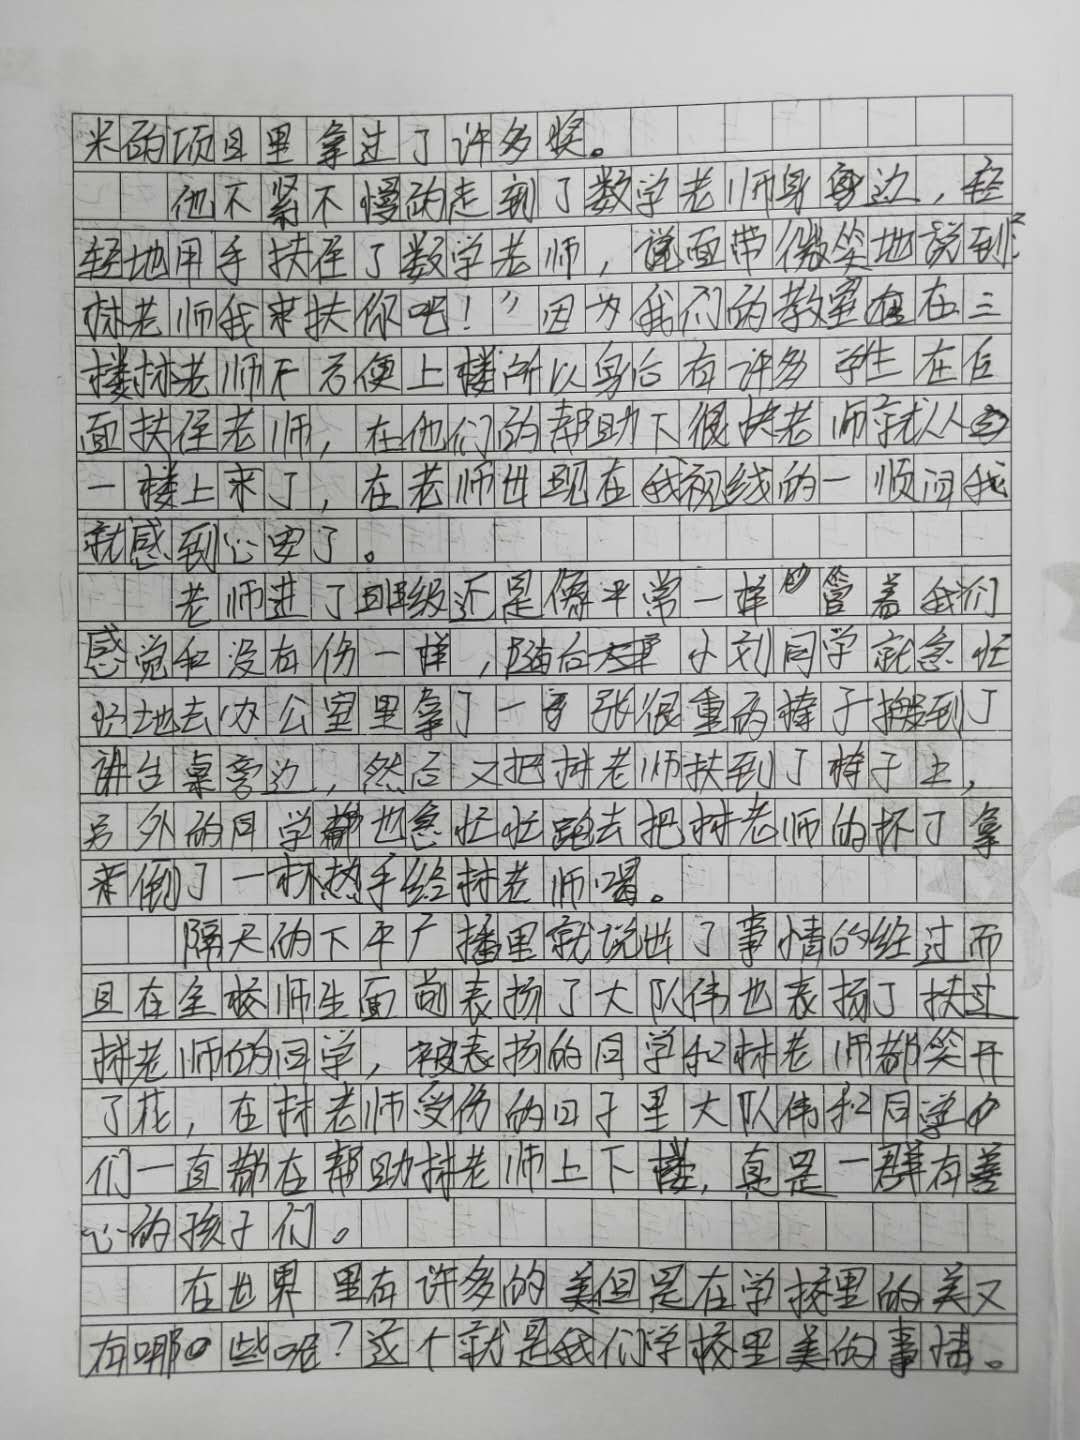 米的项目里拿过了许多奖。
他不紧不慢的走到了数学老师身边，轻
轻地用手扶住了数学老师，面带微笑地说到：“
林老师我来扶你吧！”因为我们的教室在三
楼林老师不方便上楼所以身后有许多学生在后
面扶住老师，在他们的帮助下很快老师就从
一楼上来了，在老师出现在我视线的一顺间我
就感到心安了。
老师进了班级还是像平常一样的管着我们
感觉和没有伤一样，随后小刘同学就急忙
忙地去办公室里拿了一张很重的椅子搬到了
讲台桌旁边，然后又把林老师扶到了椅子上，
另外的同学也急忙忙跑去把林老师的杯了拿
来倒了一杯热手给林老师喝。
隔天的下午广播里就说出了事情的经过而
且在全校师生面前表扬了大队伟也表扬了扶过
林老师的同学，被表扬的同学和林老师都笑开
了花，在林老师受伤的日子里大队伟和同学
们一直都在帮助林老师上下楼，真是一群有善
心的孩子们。
在世界里有许多的美但是在学校里的美又
有哪些呢？这个就是我们学校里美的事情。